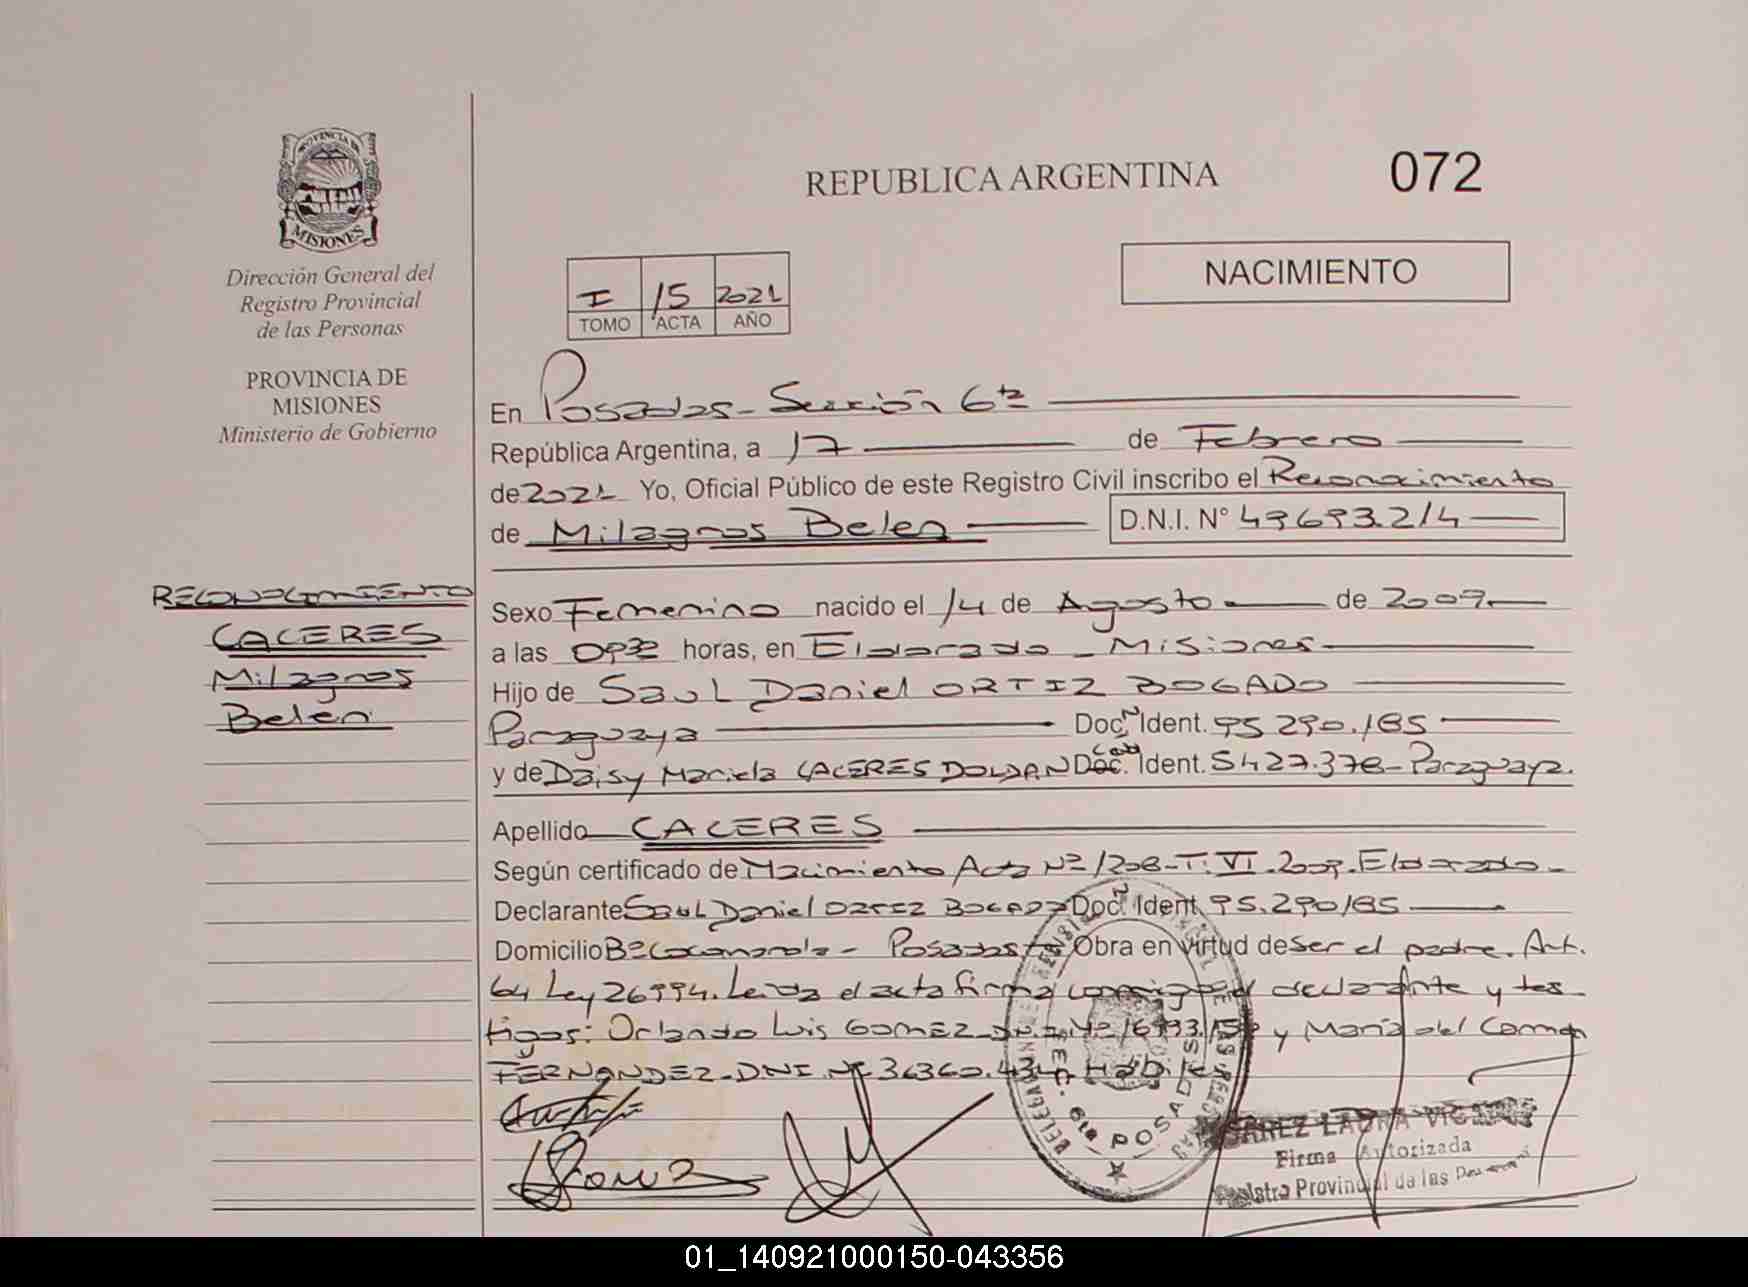 PROVINCIA DE
MISIONES
Dirección General del
Registro Provincial
de las Personas
PROVINCIA DE
MISIONES
Ministerio de Gobierno
RECONOCIMIENTO
CACERES
Milagros
Belén
REPUBLICA ARGENTINA 072
NACIMIENTO
I 15 2021
TOMO ACTA AÑO
En Posadas - Sección 6ta
República Argentina, a 17 de Febrero
de 2021 Yo, Oficial Público de este Registro Civil inscribo el Reconocimiento
de Milagros Belen D.N.I. N° 49693.214
Sexo Femenino nacido el 14 de Agosto de 2009
a las horas, en Eldorado - Misiones
Hijo de Saul Daniel ORTIZ BOGADO
Paraguaya Doc. Ident. 95.290.185
y de Daisy Mariela CACERES DOLDAN Doc. Ident. 5427.378 - Paraguaya.
Apellido CACERES
Según certificado de Nacimiento Acta Nº 1208 - T. VI - 2009. Eldorado -
Declarante Saul Daniel ORTIZ BOGADO Doc. Ident. 95.290185
Domicilio Bº Cocomarola - Posadas Obra en virtud de Ser el padre. Art.
64 Ley 26994. Leida el acta firma conmigo el declarante y tes
tigos: Orlando Luis GOMEZ DNI Nº y María del Carmen
FERNANDEZ - DNI Nº 36360.434 Hábiles
SEC. 6ta POSADAS
LAURA
Firma Autorizada
Registro Provincial de las Personas
01_140921000150-043356